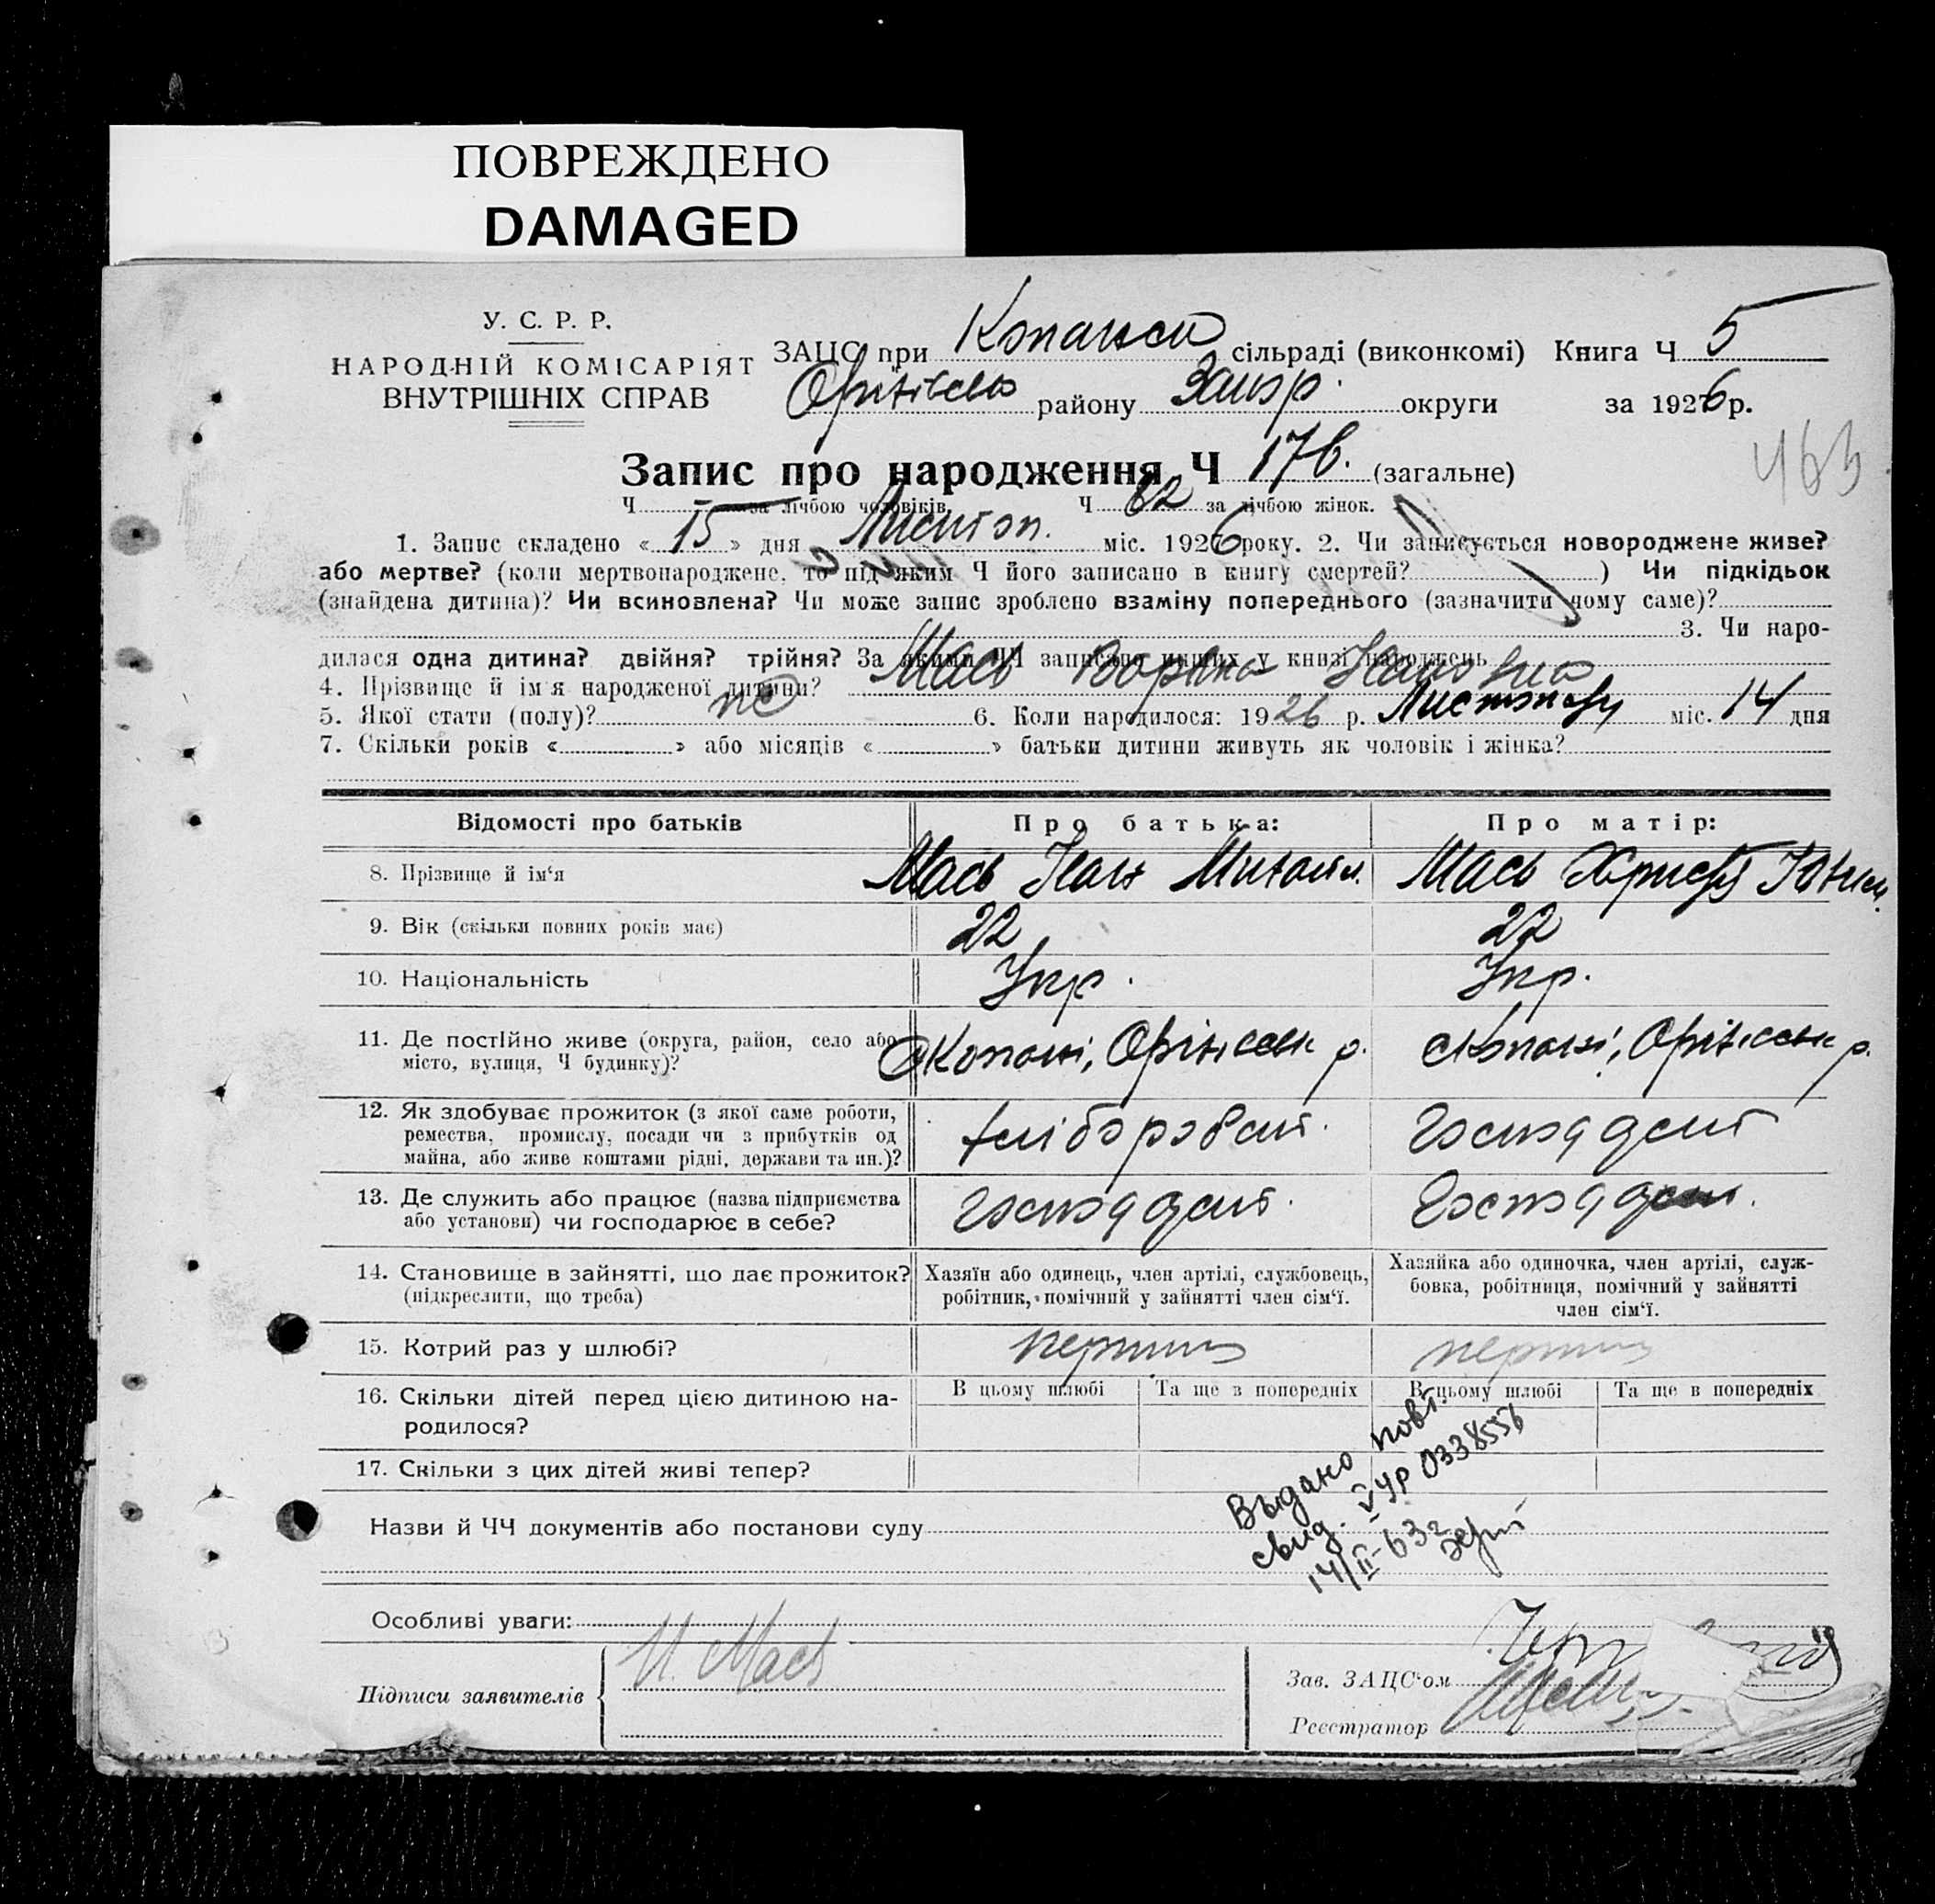 ПОВРЕЖДЕНО
DAMAGED
У. С. Р. Р.
НАРОДНІЙ КОМІСАРІЯТ
ВНУТРІШНІХ СПРАВ
ЗАЦС при сільраді (виконкомі) Книга Ч 5
району Запор. округи за 1926 р.
Запис про народження Ч 176. (загальне)
Ч за лічбою чоловіків, Ч 62 за лічбою жінок.
1. Запис складено « 15 » дня Листоп. міс. 1926 року. 2. Чи записується новороджене живе?
або мертве? (коли мертвонароджене, то під яким Ч його записано в книгу смертей? ) Чи підкідьок
(знайдена дитина)? Чи всиновлена? Чи може запис зроблено взаміну попереднього (зазначити чому саме)?
3. Чи наро-
дилася одна дитина? двійня? трійня? За якими ЧЧ записано инших у книзі народжень
4. Прізвище й ім'я народженої дитини? Мась Ивановна
5. Якої стати (полу)? 6. Коли народилося: 1926 р. Листопаду міс. 14 дня
7. Скільки років « » або місяців « » батьки дитини живуть як чоловік і жінка?
Відомості про батьків Про батька: Про матір:
8. Прізвище й ім'я Мась Іван Михайл. Мась Христя
9. Вік (скільки повних років має) 22 22
10. Національність Укр. Укр.
11. Де постійно живе (округа, район, село або
місто, вулиця, Ч будинку)? Копані, Оріхівськ р. с Копані, Оріхівськ р.
12. Як здобуває прожиток (з якої саме роботи,
ремества, промислу, посади чи з прибутків од
майна, або живе коштами рідні, держави та ин.)? хліборобст. господарст
13. Де служить або працює (назва підприємства
або установи) чи господарює в себе? господарст. господарст.
14. Становище в зайнятті, що дає прожиток?
(підкреслити, що треба)
Хазяїн або одинець, член артілі, службовець,
робітник, помічний у зайнятті член сім'ї.
Хазяйка або одиночка, член артілі, служ-
бовка, робітниця, помічний у зайнятті
член сім'ї.
15. Котрий раз у шлюбі? перший перший
16. Скільки дітей перед цією дитиною на-
родилося?
В цьому шлюбі Та ще в попередніх В цьому шлюбі Та ще в попередніх
17. Скільки з цих дітей живі тепер?
Выдано повт.
свид. V УР 0338556
14/II-63г
Назви й ЧЧ документів або постанови суду
Особливі уваги:
Підписи заявителів И. Мась
Зав. ЗАЦС'ом
Реєстратор